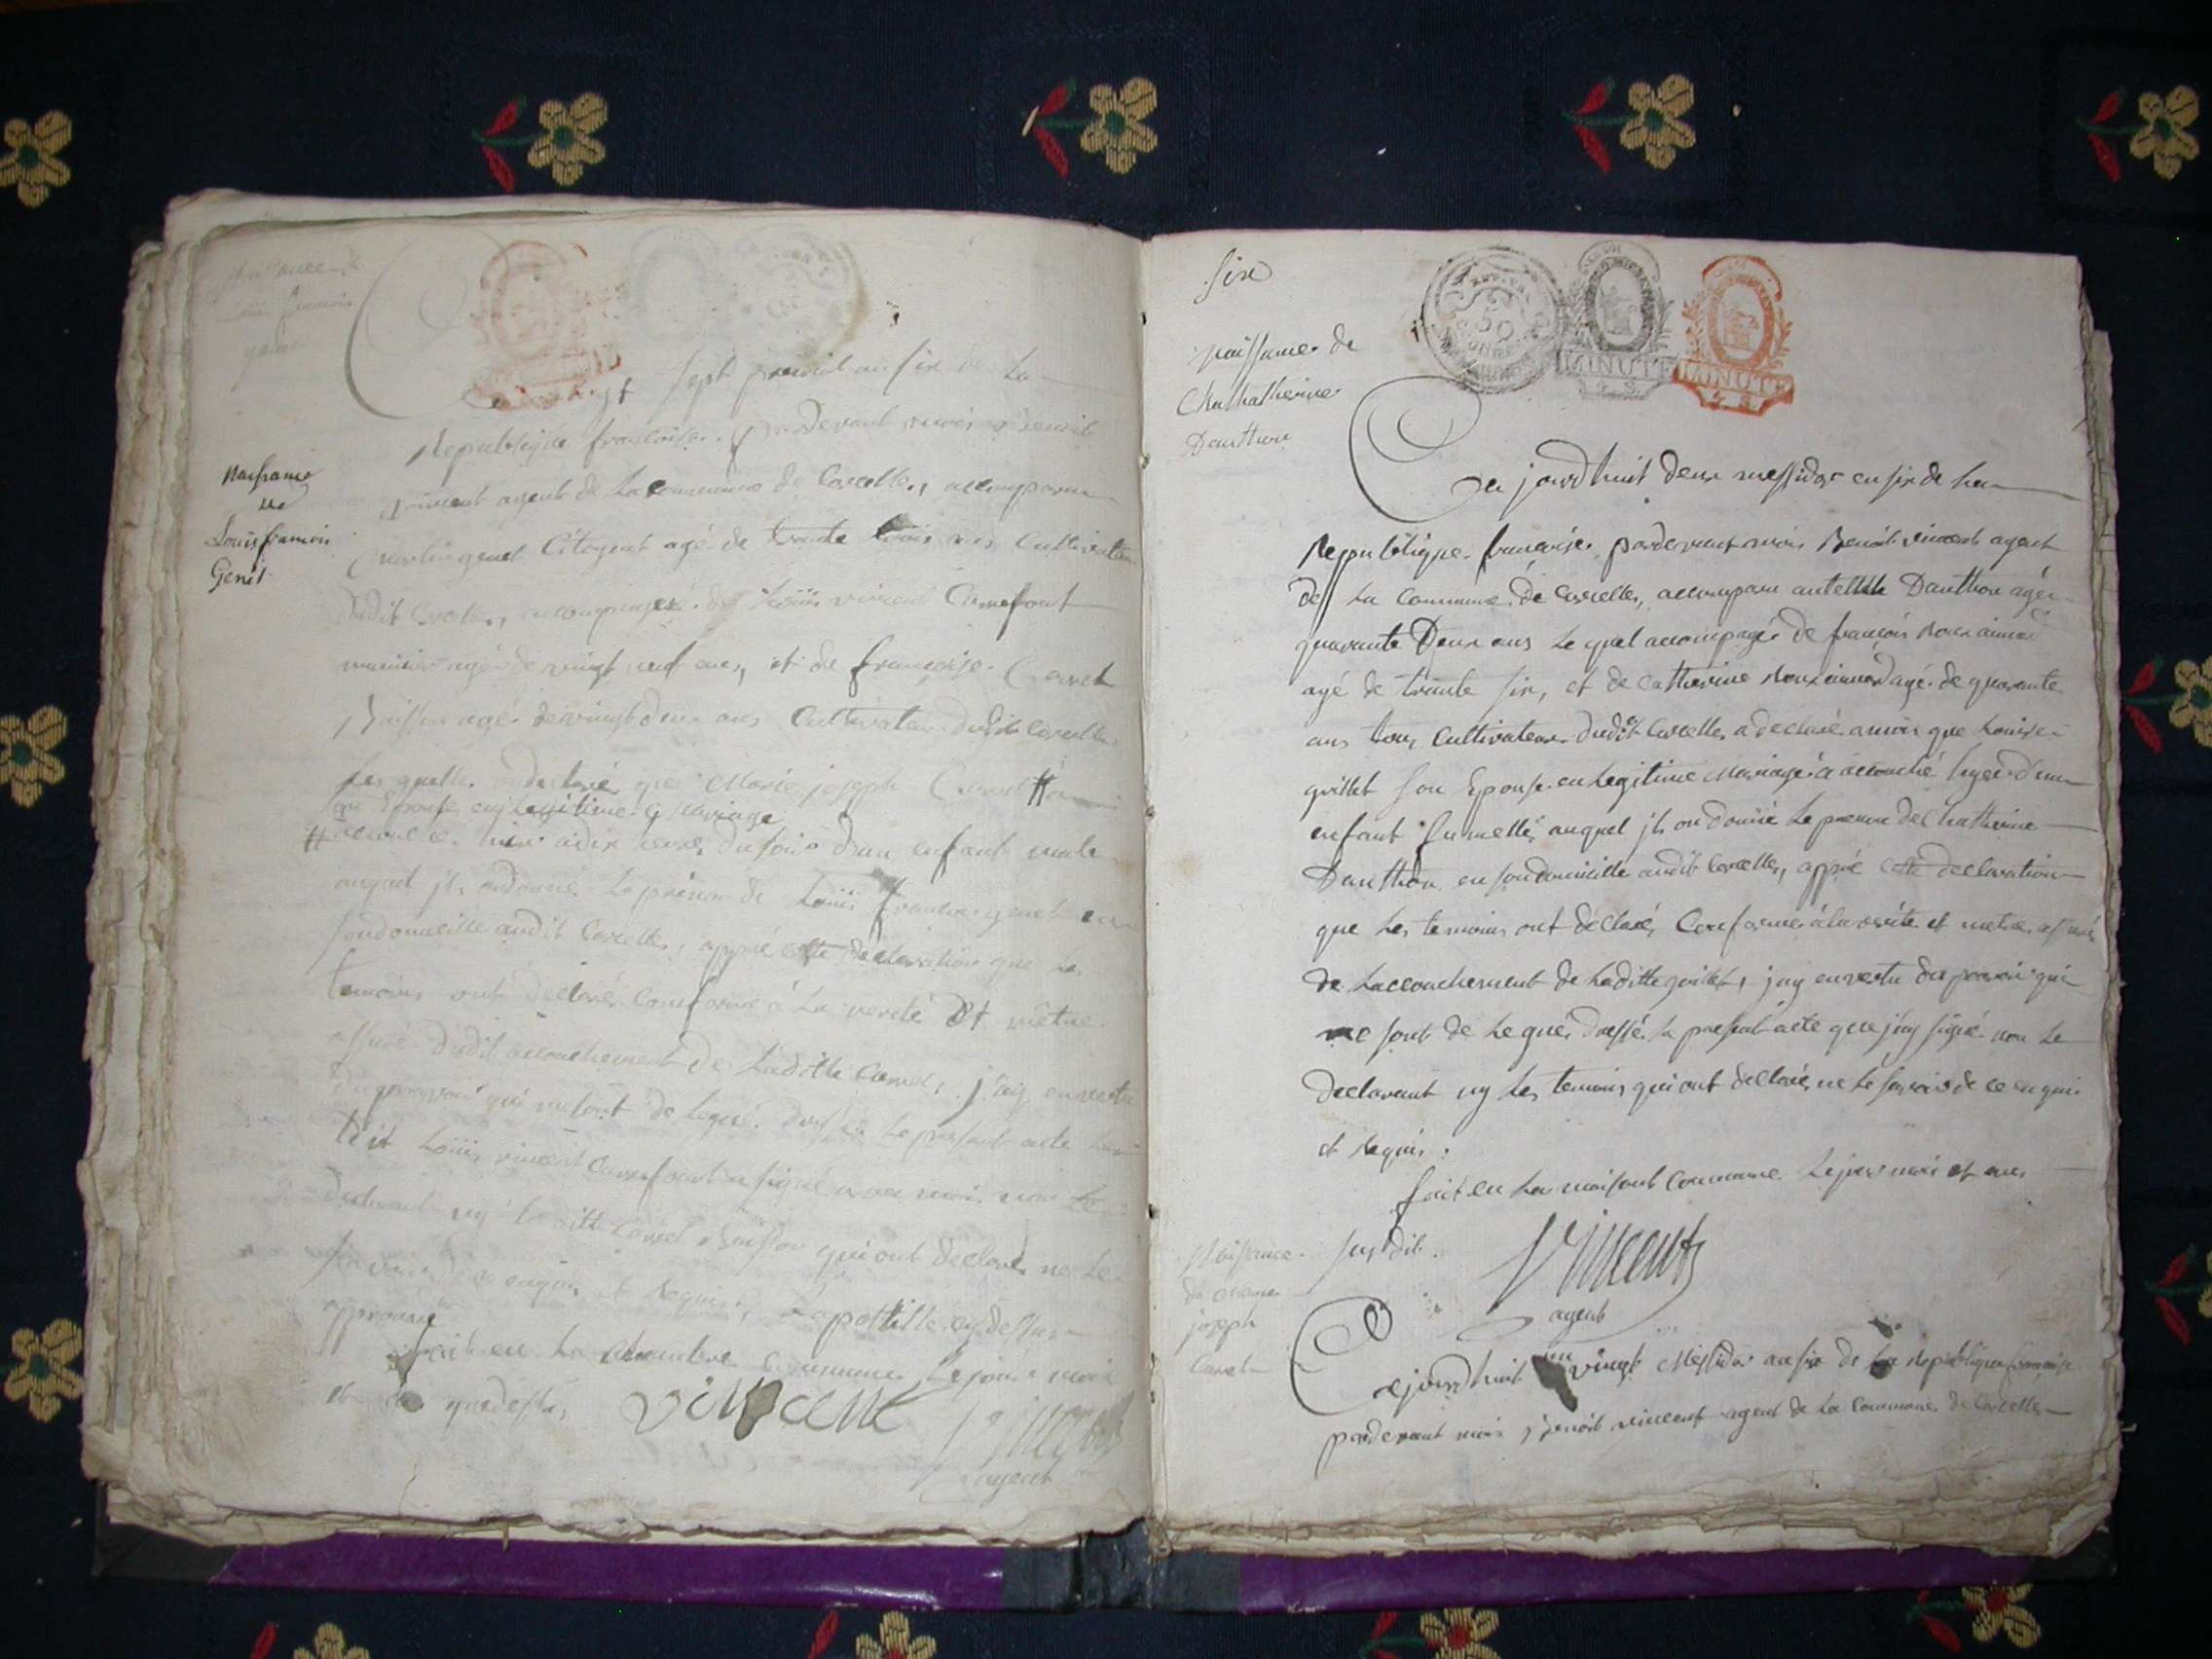 Naissance de
Louis francois
genet
Naissance
de
Louis francois
Genet
vingt sept prairial an six de La
Republique francoise. pardevant moi Benoit
vincent agent de La commune de Corcelles, accomparu
genet Citoyent agé de trente trois ans Cultivateur
dudit Corcelles, accompagné de Louis vincent Carrefour
agé de vingt neuf ans, et de francoise Carret
Buisson agé de vingt deux ans Cultivateur dudit Corcelles
Les quelles declaré que Marie joseph Carret #
son Epouse en Legitime Mariage
# hier a dix heures du soir d'un enfant male
auquel ils ont donné Le prénom de Louis francois genet en
son domicille audit Corcelles, appré cette declaration que Les
temoins ont declaré Conforme à La verité Et mêtre
assuré dudit accouchement de Laditte Carret, j'ay en vertu
du pouvoir qui me sont de Legué dressé Le present acte Le
dit Louis vincent Carrefour a signé avec moi, non Le
declarant ny Laditte Carret Buisson qui ont declaré ne Le
savoir de ce enquis et Requis, apostille cy dessus
approuvé
fait en La chambre Commune Le jour mois
et an que dessus
vincent Vincent
agent
six
naissance de
Chathatherine
Dauthon
50
MINUTE MINUTE
Ce jourd'huit deux messidor en six de La
Republique francoise pardevant moi Benoit vincent agent
de La Commune de Corcelles, accomparu Dauthon agé
quarante Deux ans Le quel accompagé de francois
agé de trente six, et de Catherine agé de quarante
ans tous Cultivateur dudit Corcelles a declaré a moi que Louise
guillet son Epouse en Legitime Mariage a accouché hyer d'un
enfant fumelle auquel ils on donné Le prenom de Chatherine
Dauthon en son domicille audit Corcelles, appré cette declaration
que Les temoins ont déclaré Conforme à la verité et metre assuré
de Laccouchement de Laditte guillet, jay en vertu du pouvoir qui
me sont de Legué dressé Le present acte que j'ay signé non Le
declarant ny Les temoins qui ont declaré ne Le savoir de ce enquis
et Requis.
fait en La maisont Commune Le jour moi et an
susdit.
Vincent
agent
Naissance
de
joseph
Carret
Cejourd'huit vingt un Messidor an six de La Republique francoise
pardevant moi Benoit vincent agent de La Commune de Corcelles